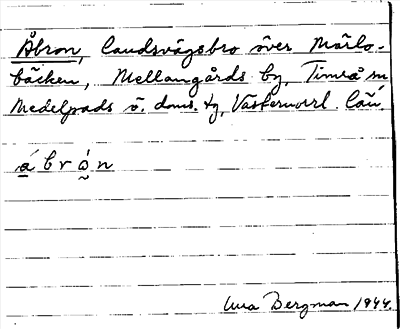 Åbron, landsvägsbro över Märlo-
bäcken, Mellangårds by, Timrå sn
Medelpads ö. doms. tg, Västernorrl. län.
á b r ò̰ n
Bergman 1944.